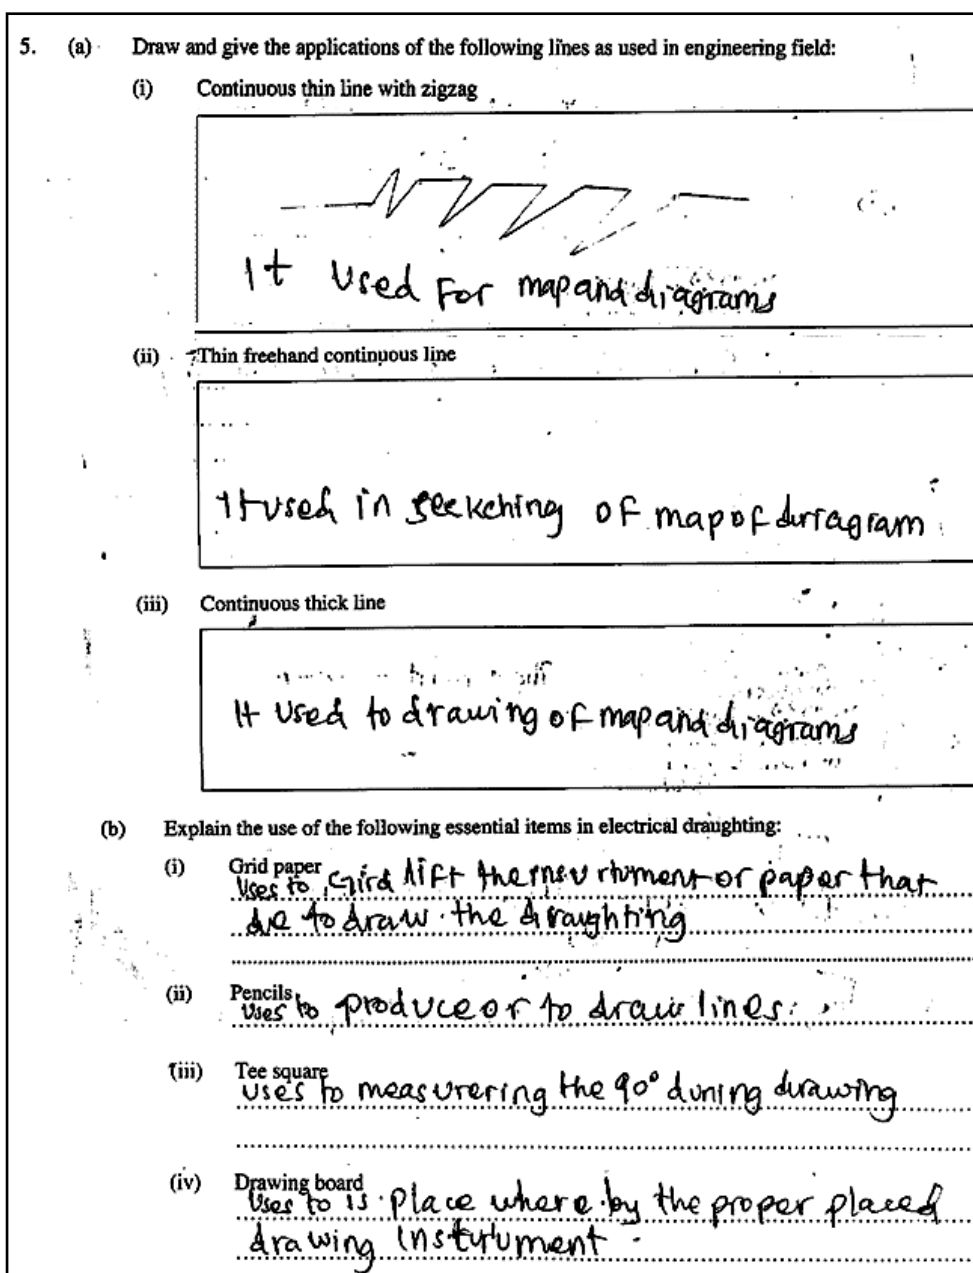 5. (a) Draw and give the applications of the following lines as used in engineering field:
(i) Continuous thin line with zigzag
It used For map and diagrams
(ii) Thin freehand continuous line
It used in seekching of map of dirragram
(iii) Continuous thick line
It used to drawing of map and diagrams
(b) Explain the use of the following essential items in electrical draughting:
(i) Grid paper
Uses to, Gird the or paper that
due to draw the draughting
(ii) Pencils
Uses to produce or to draw lines.
(iii) Tee square
uses to measurering the 90° duning drawing
(iv) Drawing board
Uses to is place where by the proper placed
drawing insturument.